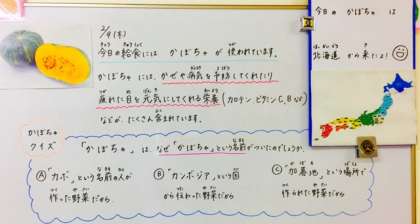 2/9(木)
今日の給食には かぼちゃ が 使われています。
かぼちゃ には、かぜや病気を予防してくれたり
疲れた目を元気にしてくれる栄養(カロテン ビタミンC,B など)
などが、たくさん含まれています。
今日の かぼちゃ は
北海道 から来たよ!
かぼちゃ
クイズ
「かぼちゃ」は、なぜ「かぼちゃ」という名前がついたのでしょうか。
Ⓐ「カボ」という名前の人が
作った野菜だから
Ⓑ「カンボジア」という国
から伝わった野菜だから
Ⓒ「加墓地」という場所で
作られた野菜だから